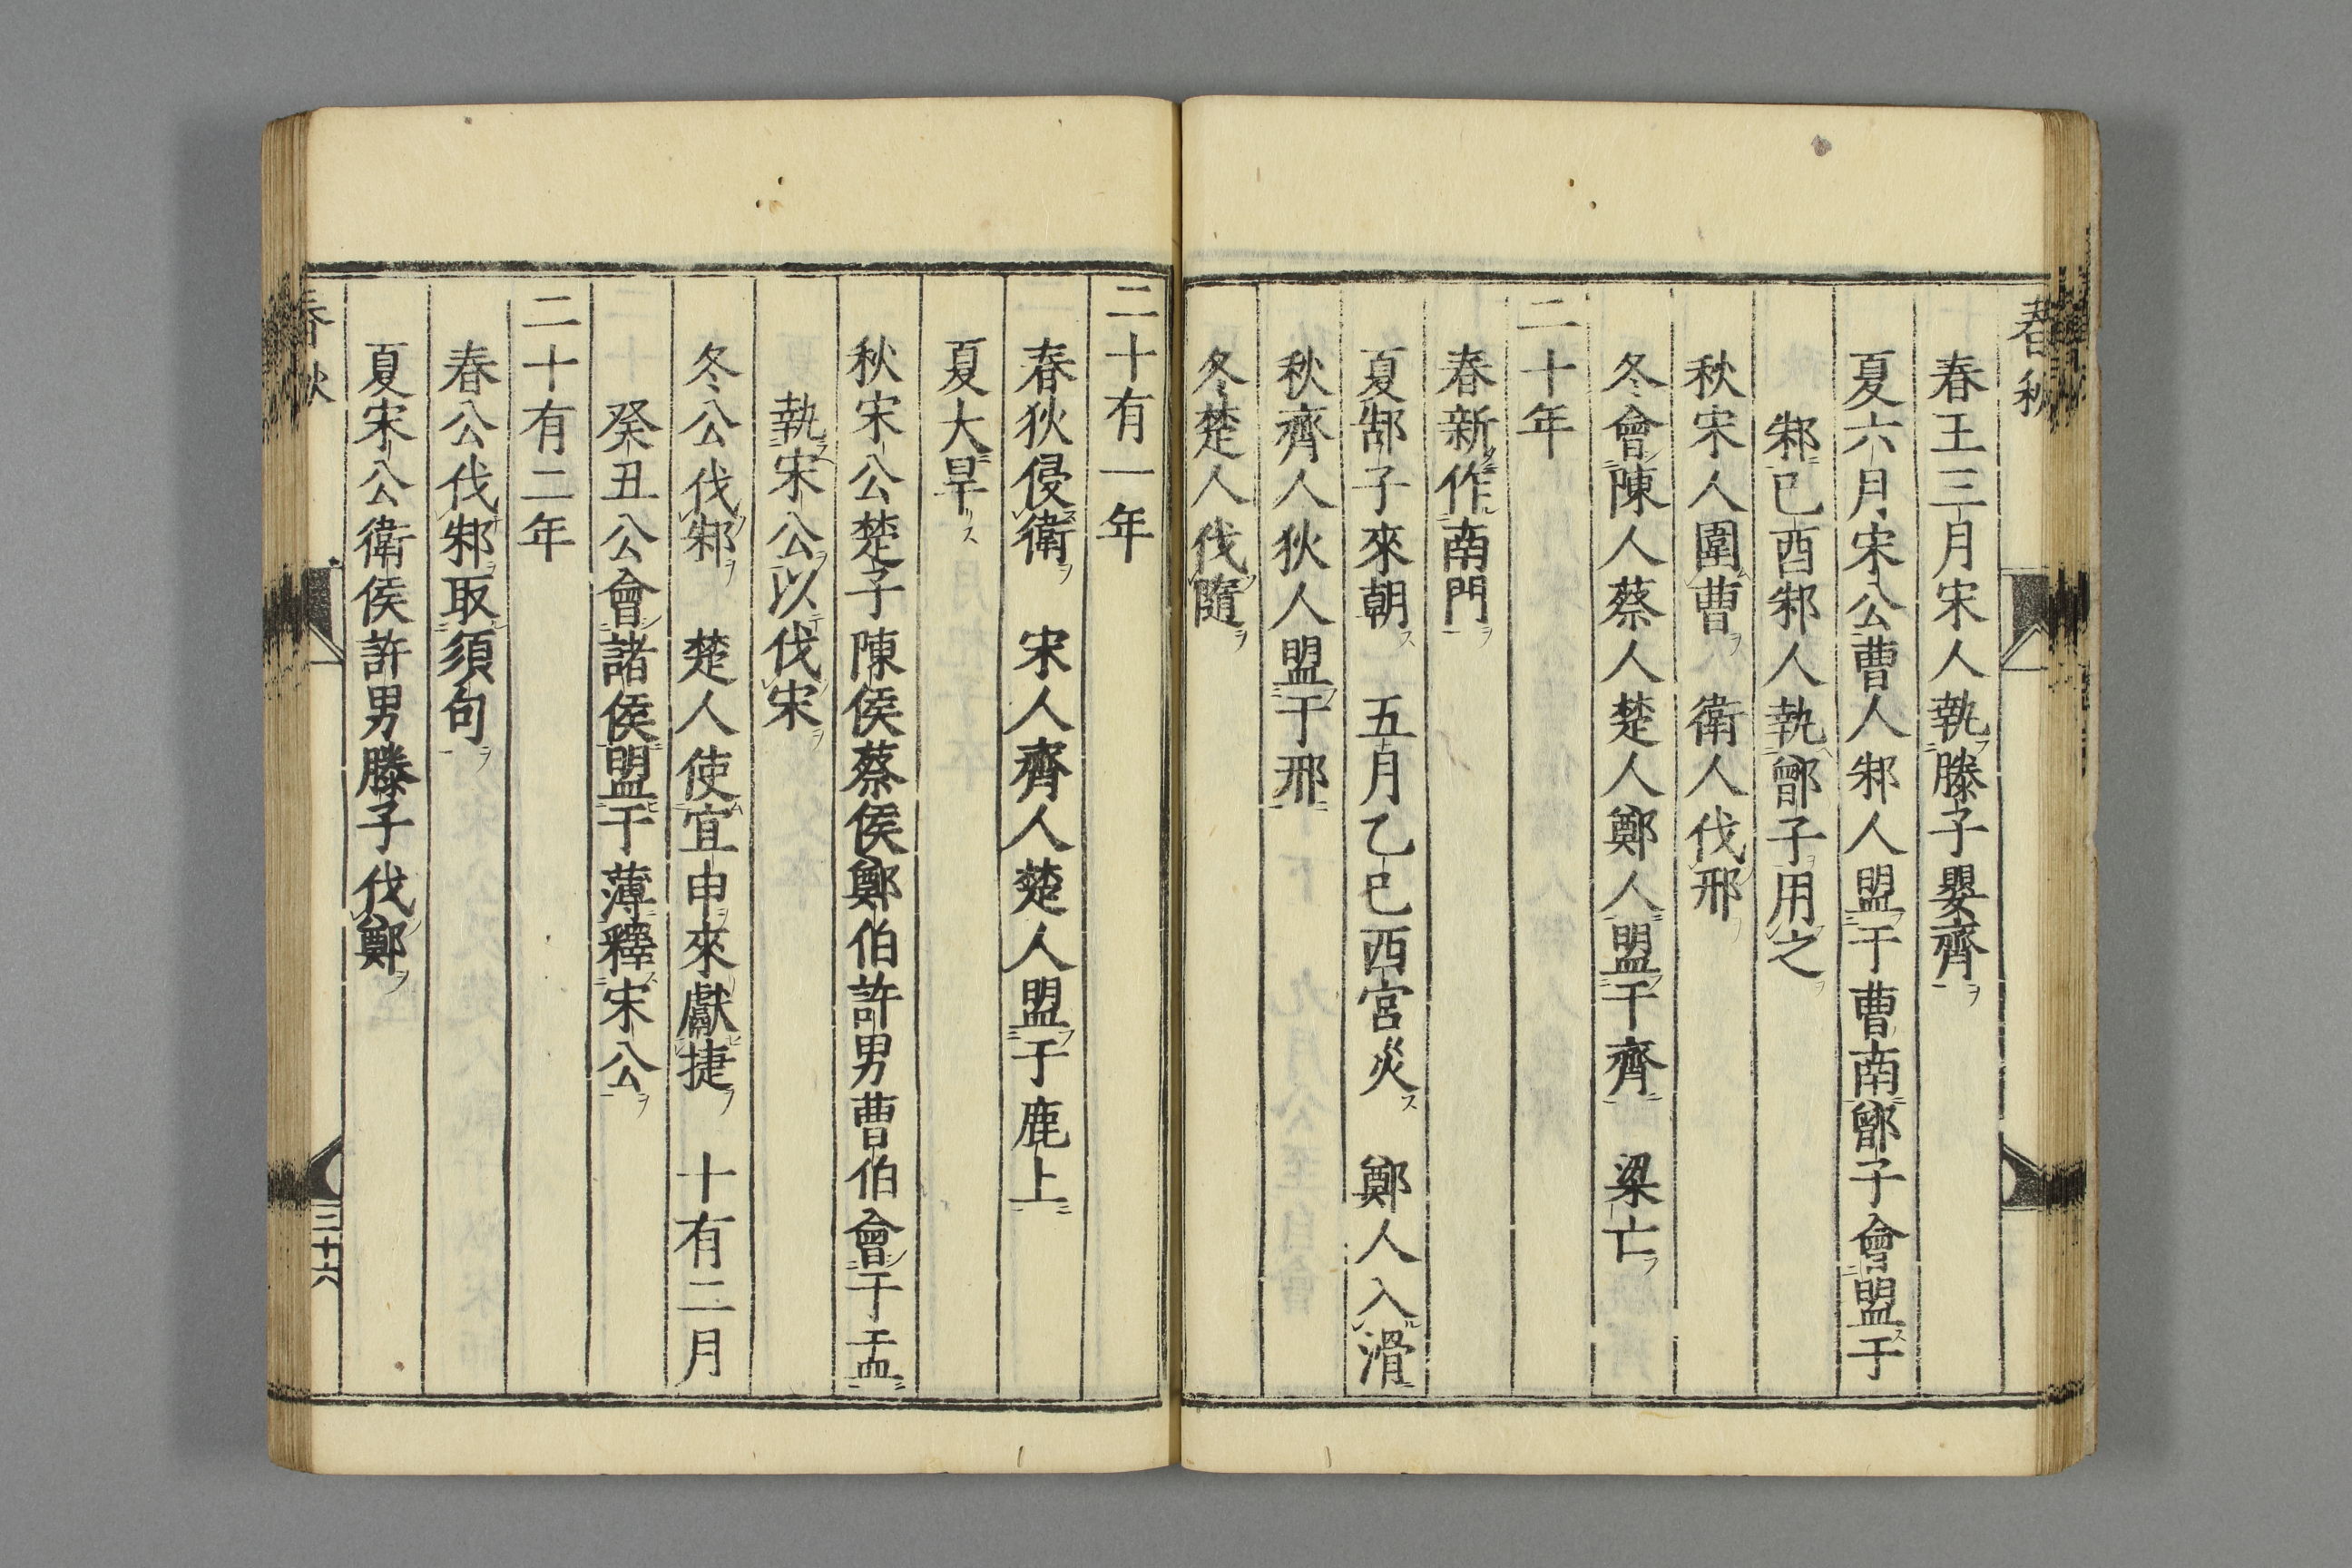 春秋
春王三月宋人執滕子嬰齊
夏六月宋公曹人邾人盟于曹南鄫子會盟于
邾己酉邾人執鄫子用之
秋宋人圍曹　衛人伐邢
冬會陳人蔡人楚人鄭人盟于齊　梁亡
二十年
春新作南門
夏郜子來朝　五月乙巳西宮災　鄭人入滑
秋齊人狄人盟于邢
冬楚人伐隨
二十有一年
春狄侵衛　宋人齊人楚人盟于鹿上
夏大旱
秋宋公楚子陳侯蔡侯鄭伯許男曹伯會于盂
執宋公以伐宋
冬公伐邾　楚人使宜申來獻捷　十有二月
癸丑公會諸侯盟于薄釋宋公
二十有二年
春公伐邾取須句
夏宋公衛侯許男滕子伐鄭
春秋
三十六